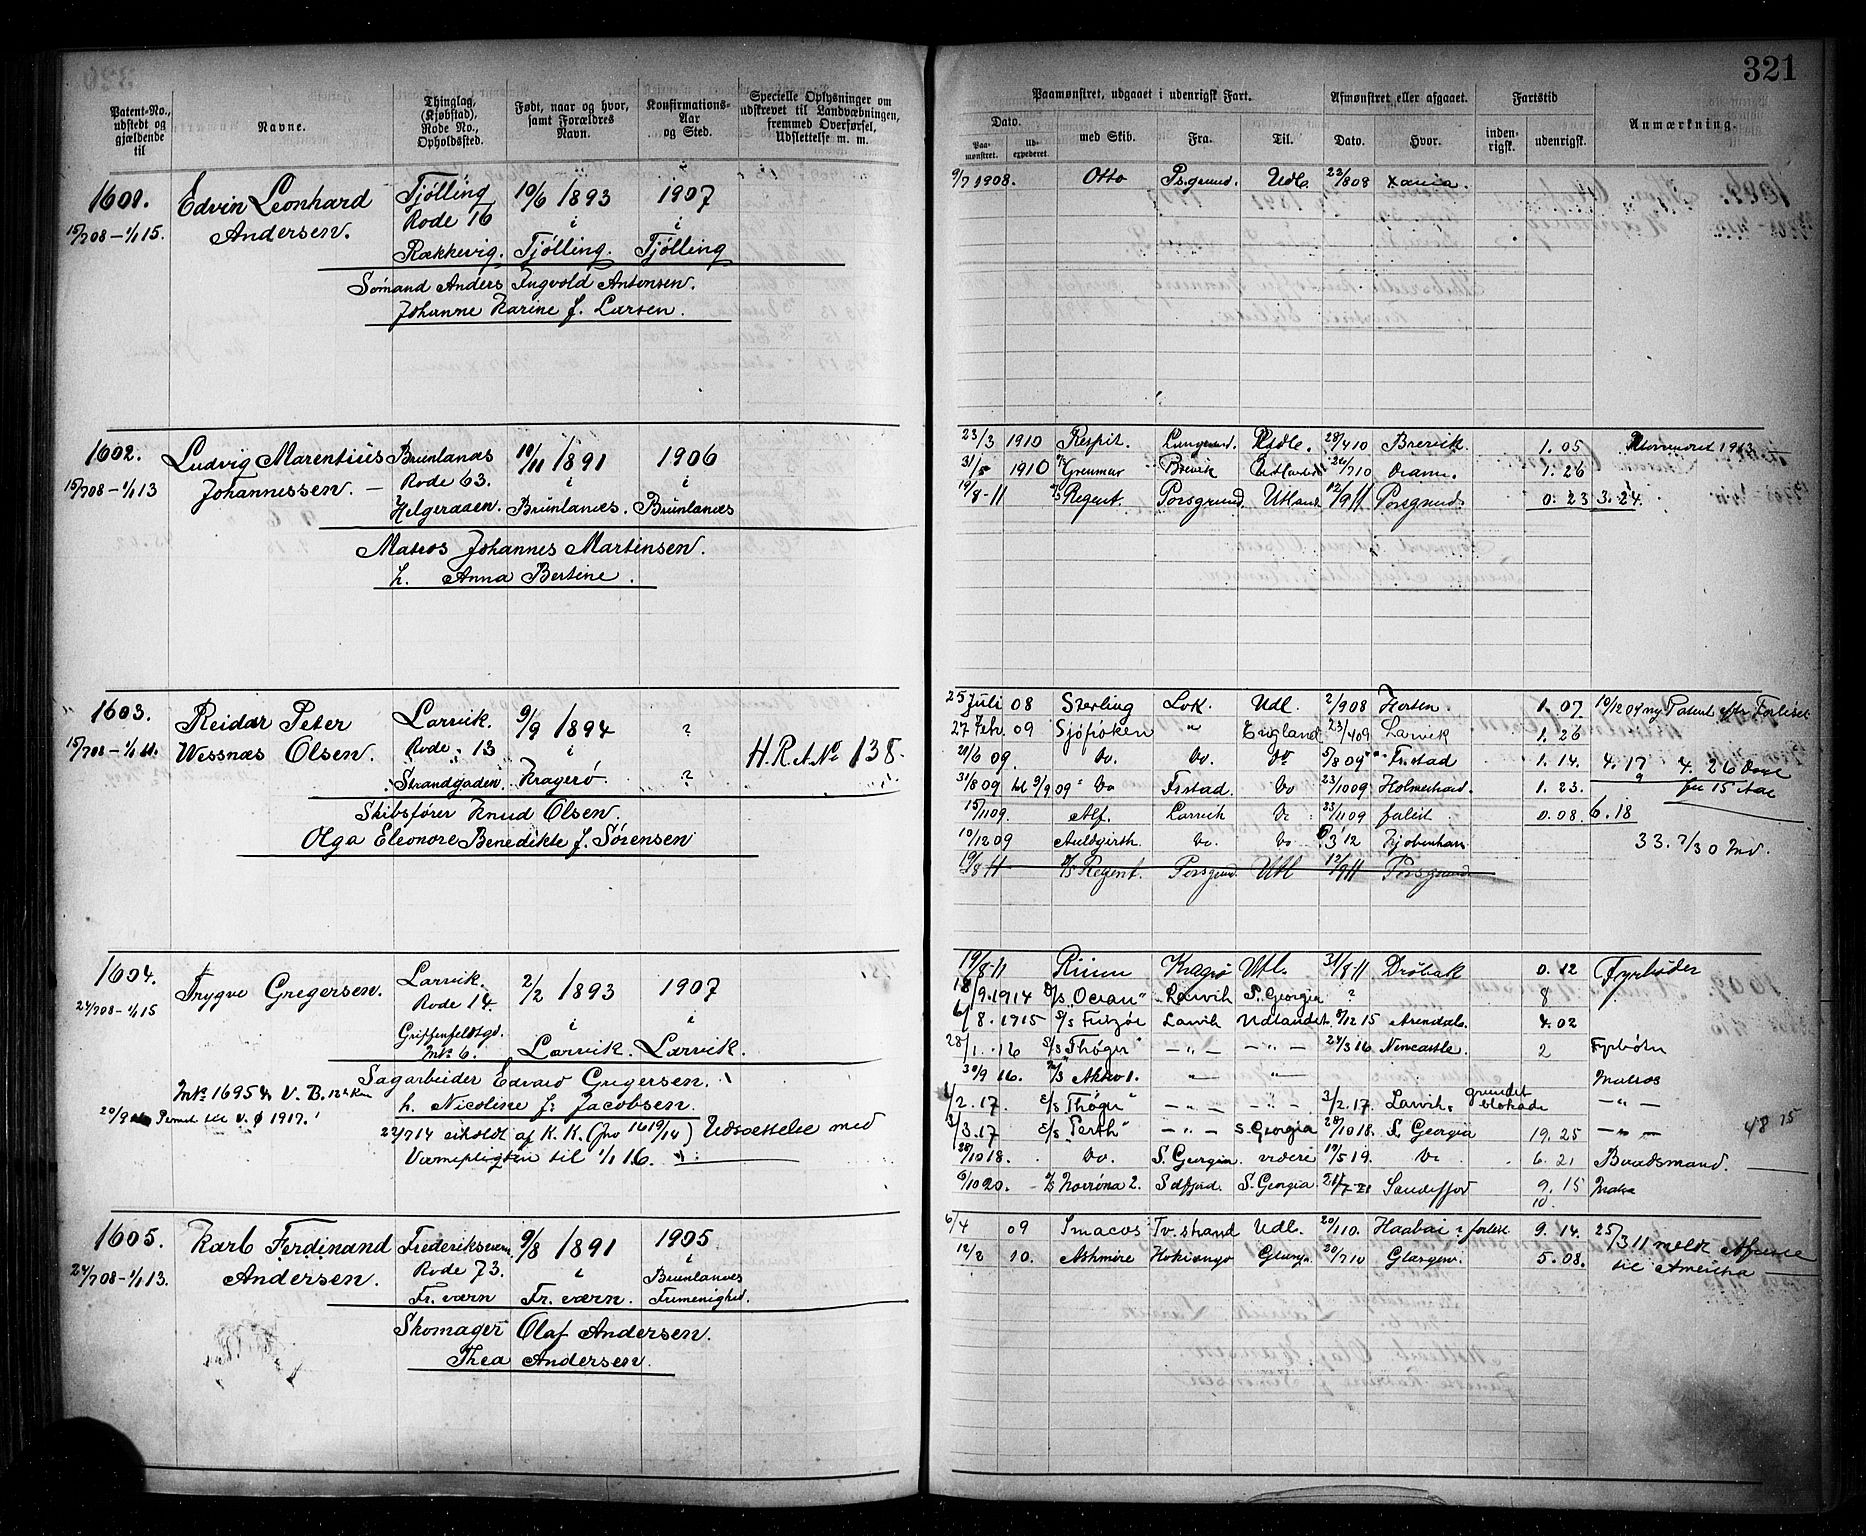 321
Patent-No., udstedt og gjældende til
Navne.
Thinglag, (Kjøbstad), Rode No., Opholdssted.
Født, naar og hvor, samt Forældres Navn.
Konfirmations-Aar og Sted.
Specielle Oplysninger om udskrevet til Landværbningen, fremmed Overførsel, Udslettelse m. m.
Paamønstret, udgaaet i udenrigsk Fart.
Afmønstret eller afgaaet.
Fartstid
Anmærkning.
Dato.
Paa-mønstret.
Ud-expederet.
med Skib.
Fra.
Til.
Dato.
Hvor.
inden-rigsk.
udenrigsk.
1601. Edvin Leonhard Tjølling 10/6 1893 1907
15/708 – 1/1 15. Andersen. Rode 16 i i
Rækkevig. Tjølling. Tjølling
Sømand Anders Ingvold Antonsen.
Johanne Karine f. Larsen.
9/7 1908. Otto Ps.grund. Udl. 23/808 Xania.
1602. Ludvig Marentius Brunlanæs 10/11 1891 1906
15/708 – 1/1 13 Johannessen. – Rode 63. i i
Helgeraaen. Brunlanæs. Brunlanæs
Matros Johannes Martinsen.
h. Anna Bertine.
23/3 1910 Respit. Langesund. Udl. 28/410 Brevik 1. 05
31/5 1910 Grenmar Brevik /710 Dram. 1. 26
19/8-11 Regent. Porsgrund. Utland 12/9 11 Porsgrund. 0. 23 3. 24.
1603. Reidar Peter Larvik. 9/9 1894 ?
15/708 – 1/1 Wessnæs Olsen. Rode 13 i H. R. A No 138.
Strandgaden. Kragerø ?
Skibsfører Knud Olsen.
Olga Eleonore Benedikte f. Sørensen
25 Juli 08 Sterling Lvk. Udl. 2/908 Horten. 1. 07. 10/12 09 ny Patent eftr Forliset
27 Febr. 09 Sjøfrøken " England 23/409 Larvik 1. 26
20/6 09. Do. Do. Do 5/8 09 Fr.stad 1. 14. 4. 17 4. 26
31/8 09 til 9/9 09 Do Frstad. Do 23/1009 Holmestrand. 1. 23. før 15 Aar
15/1109. Alf. Larvik Do 23/1109 forlist. 0. 08. 6. 18
10/12 09 Auldgirth Do. Do 3 12 Kjøbenhavn 33. 7/30 Md.
19/8-11 S/S Regent. Porsgrund. Utl 12/9 11 Porsgrund.
1604. Trygve Gregersen. Larvik. 2/2 1893 1907
24/708 – 1/1 15 Rode 14. i i
Griffenfeldtsgd. No 6. Larvik. Larvik.
Sagarbeider Edvard Gregersen.
h. Nicoline f. Jacobsen.
No 16954 V. B.
Permit til V. Ø 1917.
22/714 erholdt af K. K. (jno 1419/14) Udsættelse med
Værnepligten til 1/1 16.
19/8-11 Riim Kragrø Utl. 31/8-11 Drøbak 0. 12 Fyrbøder
18/9. 1914 S/S "Ocean" Larvik S. Georgia ? 8
6/8. 1915 S/S Fritzøe Larvik Udlandet 8/12 15 Arendal. 4. 02
28/1. 16 S/S "Thøger" – " – – " – 24/3 16 Newcastle. 2 Fyrbøter
30/9 16. Akko 1. " " Matros
1/2. 17. S/S "Thøger" – " – – " – 3/2. 17. Larvik. grundet blokade – " –
3/3. 17 S/S "Perth" – " – S. Georgia 28/10 18. S. Georgia 19. 25 – " – 48 15
28/10 18. Do. S. Georgia videre 19/5 19. Do 6. 21 Baadsmand.
6/10 20. Norrøna 2. S. Georgia. Sandefjord 9. 15
1605. Karl Ferdinand Frederiksværn 9/8 1891 1905
24/708 – 1/1 13. Andersen. Rode 73. i i Brunlanæs
Fr. værn Fr. værn. Frimenighed.
Skomager Olaf Andersen.
Thea Andersen.
6/4 09 Smacos Tv.strand Udl. 20/110. forlist 9. 14. 25/3 11 meldt
12/2 10. Ashmore Hokianga 20/710 Glasgow. 5. 08. til Amerika